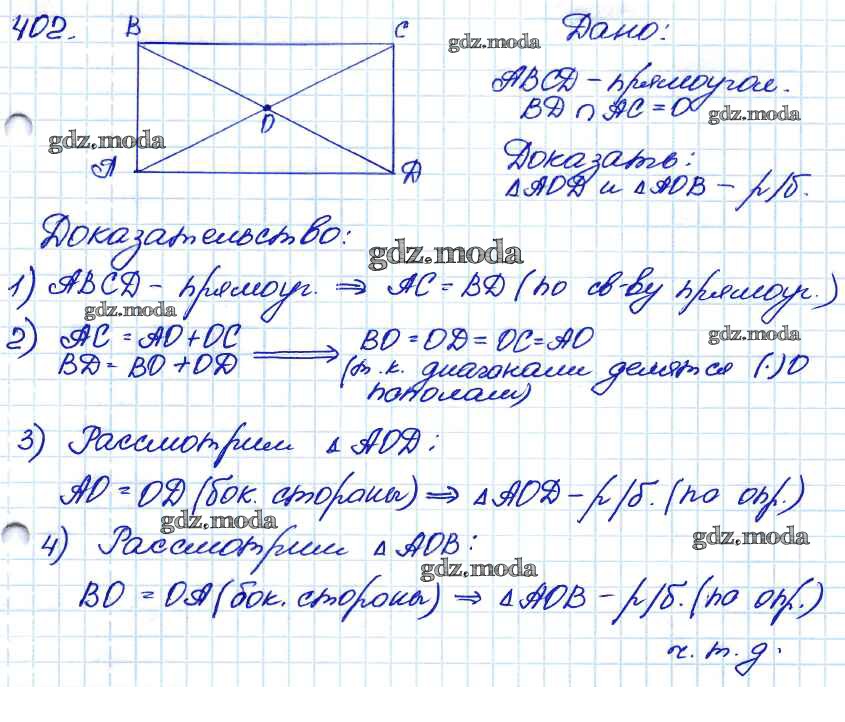 402.
B
C
gdz.moda
Дано:
ABCD - прямоугол.
BD ∩ AC = O
gdz.moda
O
gdz.moda
A
D
Доказать:
△AOD и △AOB - р/б.
Доказательство:
gdz.moda
1) ABCD - прямоуг. ⇒ AC = BD (по св-ву прямоуг.)
gdz.moda
2) AC = AO + OC
BD = BO + OD ⟹ BO = OD = OC = AO
gdz.moda
(т.к. диагонали делятся (·) O
пополам)
3) Рассмотрим △AOD:
AO = OD (бок. стороны) ⇒ △AOD - р/б. (по опр.)
gdz.moda
gdz.moda
4) Рассмотрим △AOB:
gdz.moda
BO = OA (бок. стороны) ⇒ △AOB - р/б. (по опр.)
ч.т.д.